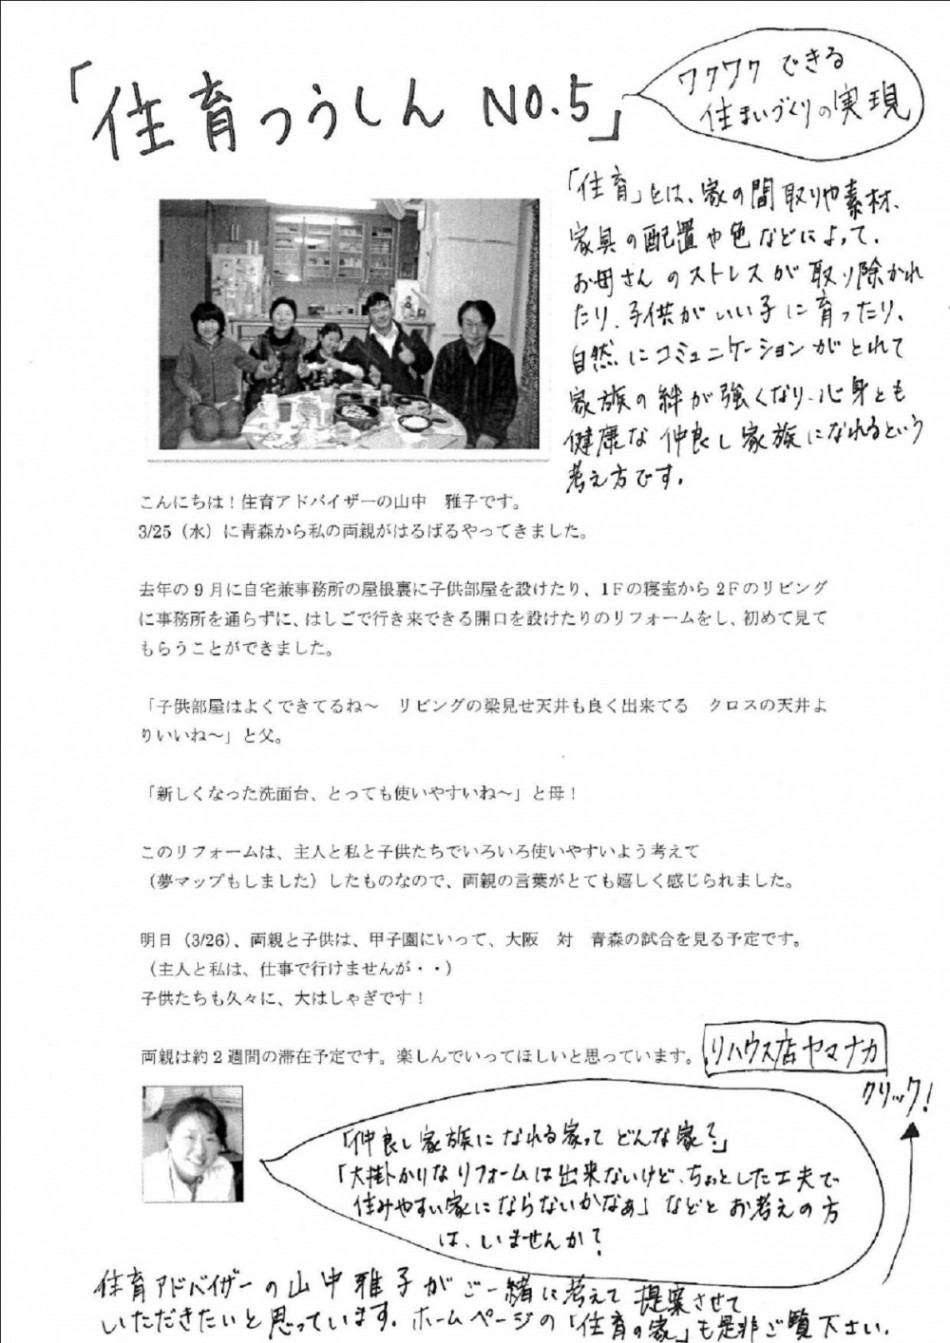 「住育つうしん NO.5」
ワクワク できる
住まいづくりの実現
「住育」とは、家の間取りや素材、
家具の配置や色などによって、
お母さんのストレスが取り除かれ
たり、子供がいい子に育ったり、
自然にコミュニケーションがとれて
家族の絆が強くなり、心身とも
健康な仲良し家族になれるという
考え方です。
こんにちは！住育アドバイザーの山中　雅子です。
3/25（水）に青森から私の両親がはるばるやってきました。
去年の9月に自宅兼事務所の屋根裏に子供部屋を設けたり、1Fの寝室から2Fのリビング
に事務所を通らずに、はしごで行き来できる開口を設けたりのリフォームをし、初めて見て
もらうことができました。
「子供部屋はよくできてるね～　リビングの梁見せ天井も良く出来てる　クロスの天井よ
りいいね～」と父。
「新しくなった洗面台、とっても使いやすいね～」と母！
このリフォームは、主人と私と子供たちでいろいろ使いやすいよう考えて
（夢マップもしました）したものなので、両親の言葉がとても嬉しく感じられました。
明日（3/26）、両親と子供は、甲子園にいって、大阪　対　青森の試合を見る予定です。
（主人と私は、仕事で行けませんが・・）
子供たちも久々に、大はしゃぎです！
両親は約2週間の滞在予定です。楽しんでいってほしいと思っています。
リハウス店ヤマナカ
クリック！
「仲良し家族になれる家って どんな家？」
「大掛かりなリフォームは出来ないけど、ちょっとした工夫で
住みやすい家にならないかなぁ」などと お考えの方
は、いませんか？
住育アドバイザーの山中雅子がご一緒に考えて 提案させて
いただきたいと思っています。ホームページの「住育の家」も是非ご覧下さい。